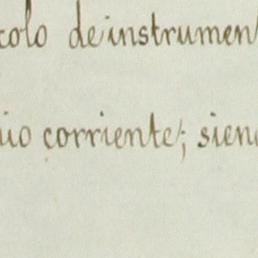 colo de instrumen
uo corriente; sien